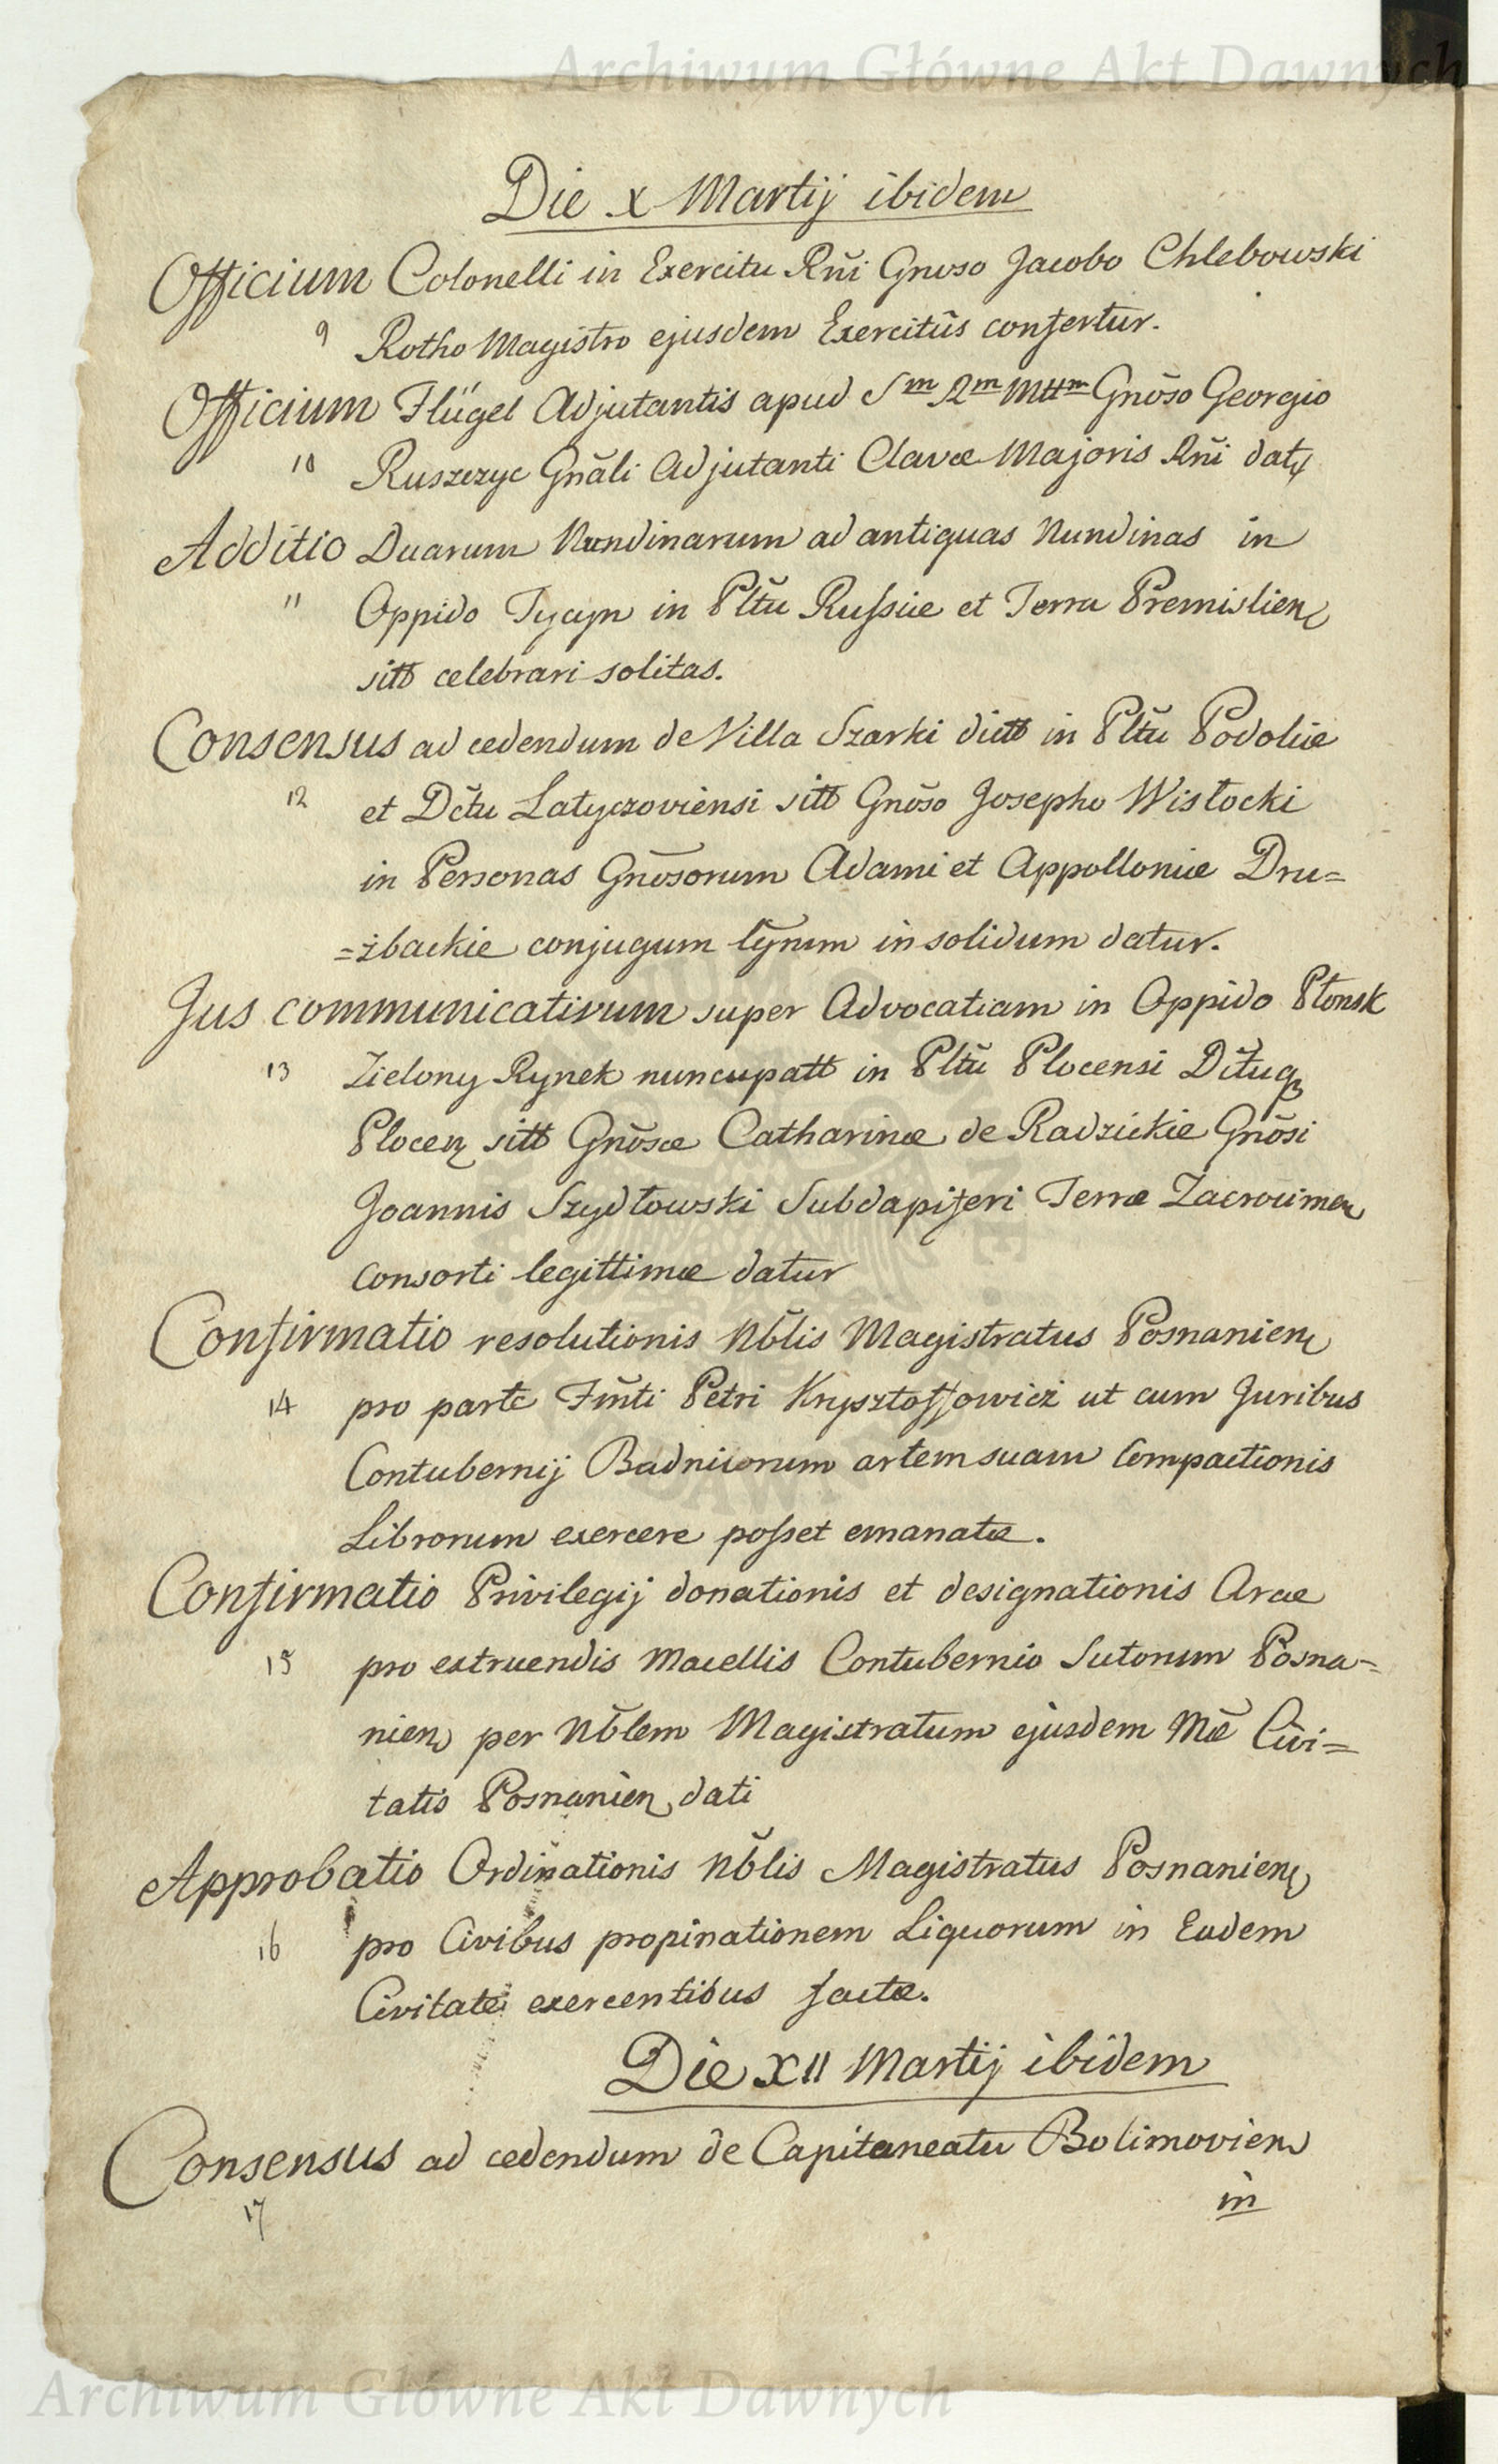 Archiwum Główne Akt Dawnych
Die X Martij ibidem
Officium Colonelli in Exercitu Rñi Gnoso Jacobo Chlebowski
9 Rotho Magistro ejusdem Exercitûs confertur.
Officium Flügel Adjutantis apud Sm Rm Mttm Gnõso Georgio
10 Ruszczyc Gnãli Adjutanti Clavæ Majoris Rñi datꝶ
Additio Duarum Nundinarum ad antiquas Nundinas in
11 Oppido Tyczyn in Pltũ Russiæ et Terra Premislien
sitt celebrari solitas.
Consensus ad cedendum de Villa Szarki dictt in Pltũ Podoliæ
12 et Dctũ Latyczoviensi sitt Gnõso Josepho Wisłocki
in Personas Gnõsorum Adami et Appolloniæ Dru=
=żbackie conjugum lg̃nm in solidum datur.
Jus communicativum super Advocatiam in Oppido Płonsk
13 Zielony Rynek nuncupatt in Pltũ Plocensi Dc̃tuq
Plocen sitt Gnõsæ Catharinæ de Radzickie Gnõsi
Joannis Szydłowski Subdapiferi Terræ Zacrocimen
Consorti legittimæ datur
Confirmatio resolutionis Nõblis Magistratus Posnanien
14 pro parte Fmti Petri Krysztoffowicz ut cum Juribus
Contubernij Badniiorum artem suam Compactionis
Librorum exercere posset emanatæ.
Confirmatio Privilegij donationis et designationis Areæ
15 pro extruendis Macellis Contubernio Sutorum Posna=
nien per Nõblem Magistratum ejusdem Mæ Civi=
tatis Posnanien dati
Approbatio Ordinationis Nõblis Magistratus Posnanien
16 pro Civibus propinationem Liquorum in Eadem
Civitate exercentibus factæ.
Die XII Martij ibidem
Consensus ad cedendum de Capitaneatu Bolimovien
17 in
Archiwum Główne Akt Dawnych